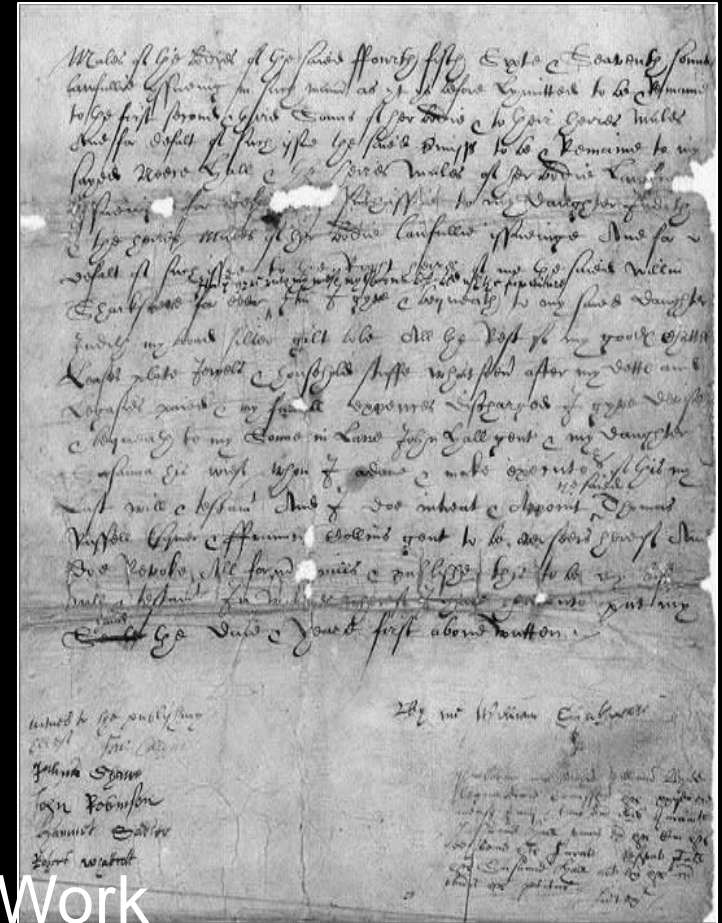 Males of the bodies of the saied ffourth fifth Sixte & Seaventh sonnes
lawfullie yssueing in such manner as yt ys before Lymitted to be & Remaine
to the first second & third Sonns of her bodie & to their heires Males
And for defalt of such issue the said premisses to be & Remaine to my
sayed Neece Hall & the heires Males of her bodie Lawfully
yssueing for defalt to my Daughter Judith
& the heires Males of her bodie lawfullie issueinge And for
defalt of such issue to the Right heires of me the saied Willm
Item I gyve unto my wief my second best bed with the furniture
Shackspeare for ever Itm I gyve & bequeath to my saied Daughter
Judith my broad silver gilt bole All the Rest of my goodes Chattels
Leases plate Jewels & household stuffe whatsoever after my dettes and
Legasies paied & my funerall expences discharged I gyve devise
& bequeath to my Sonne in Lawe John Hall gent & my daughter
Susanna his wief whom I ordaine & make executors of this my
the saied
Last will & testamt And I doe intreat & Appoint Thomas
Russell Esquier & ffrauncis Collins gent to be overseers hereof And
doe Revoke All former wills & publishe this to be my last
will & testamt In witnes whereof I have hereunto put my
hand
Seale the Daie & Yeare first above written
By me William Shakspeare
witnes to the publishing
hereof
Julius Shawe
John Robinson
Hamnet Sadler
Robert Whattcott
Work